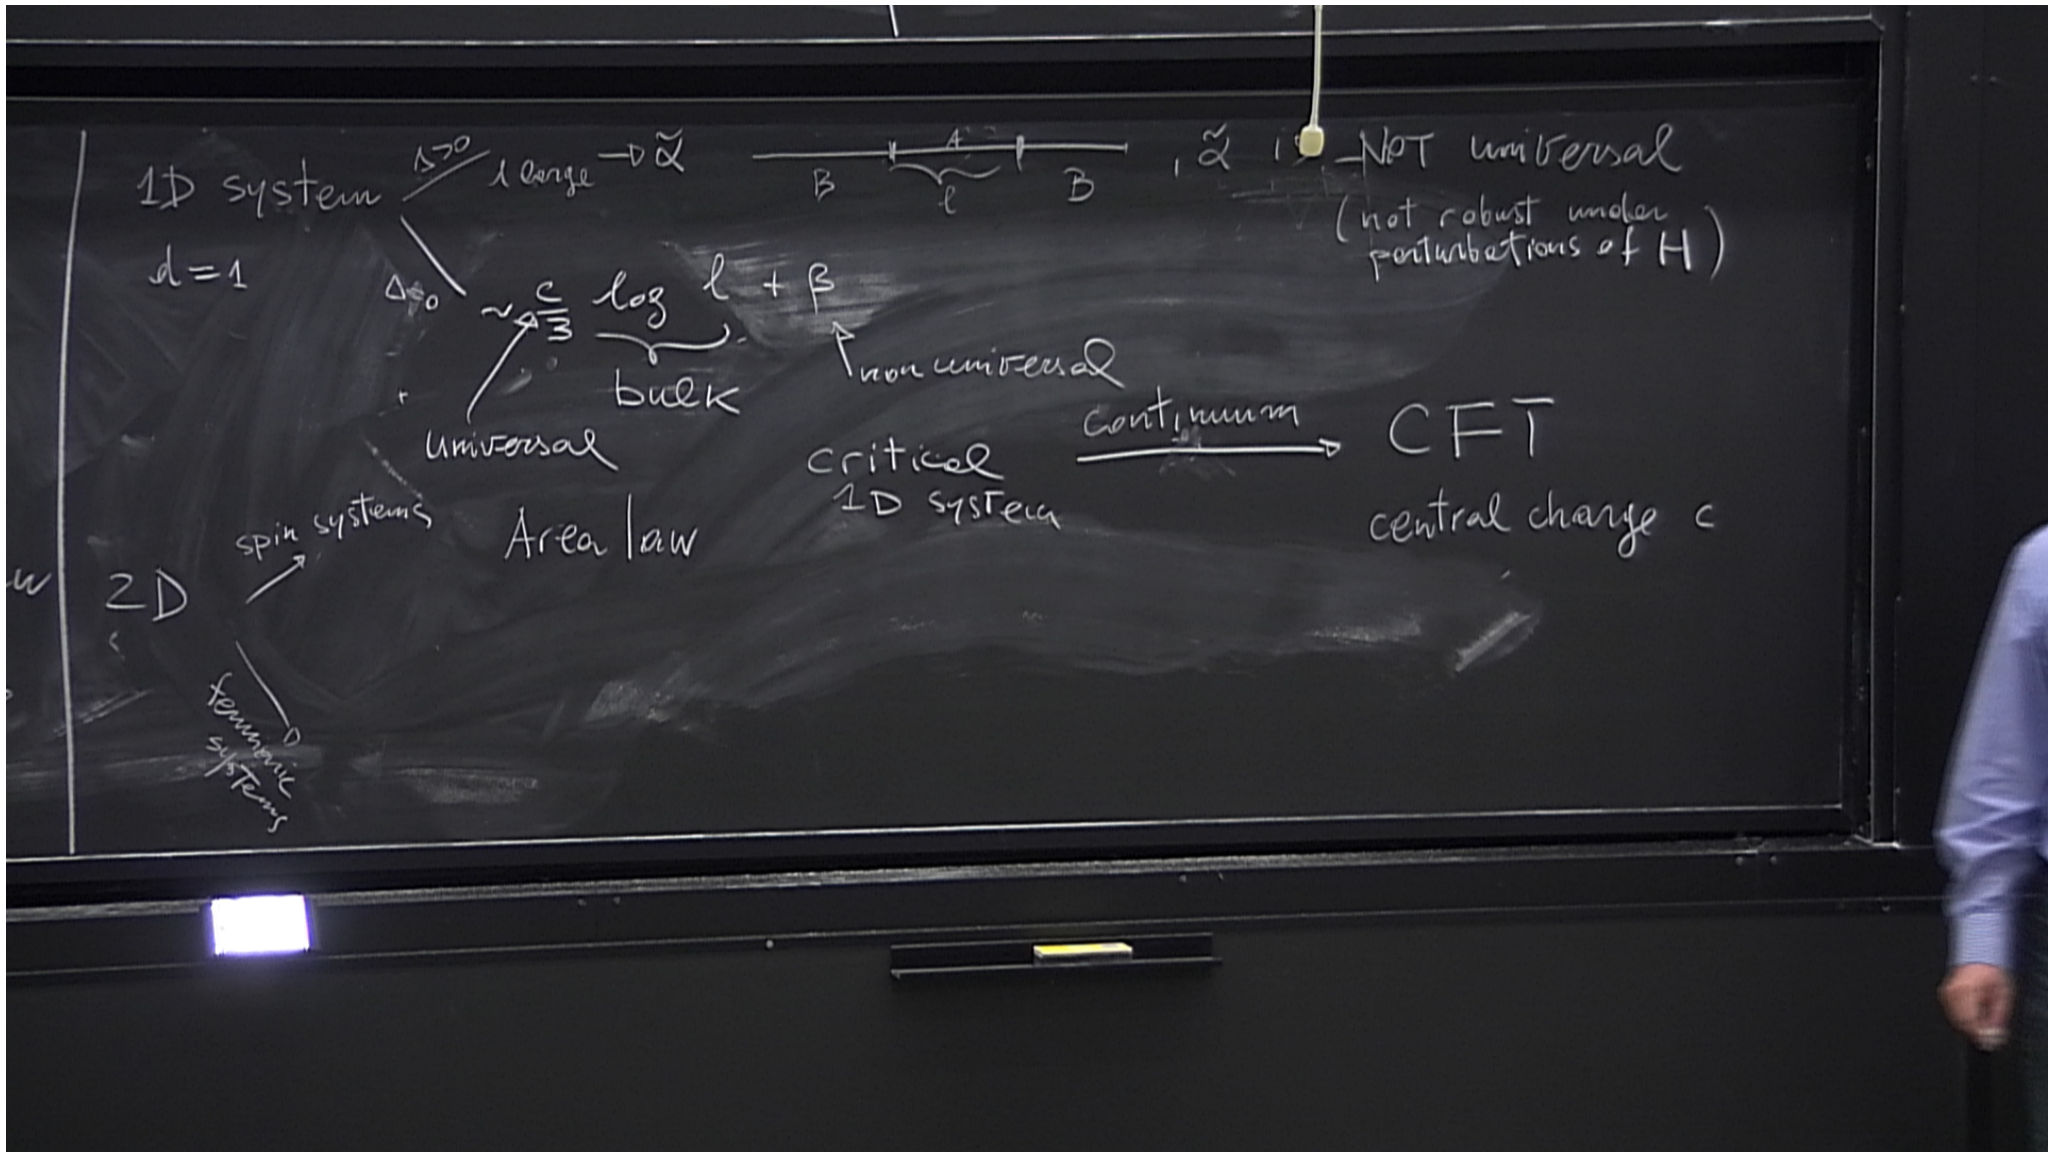 1D system Δ>0 l large → α̃ B A l B , α̃ is NOT universal
(not robust under
perturbations of H)
d=1
Δ=0 ~ c/3 log l + β
bulk
non universal
universal
critical
1D system
continuum
CFT
central charge c
spin systems
Area law
w
2D
fermionic
systems